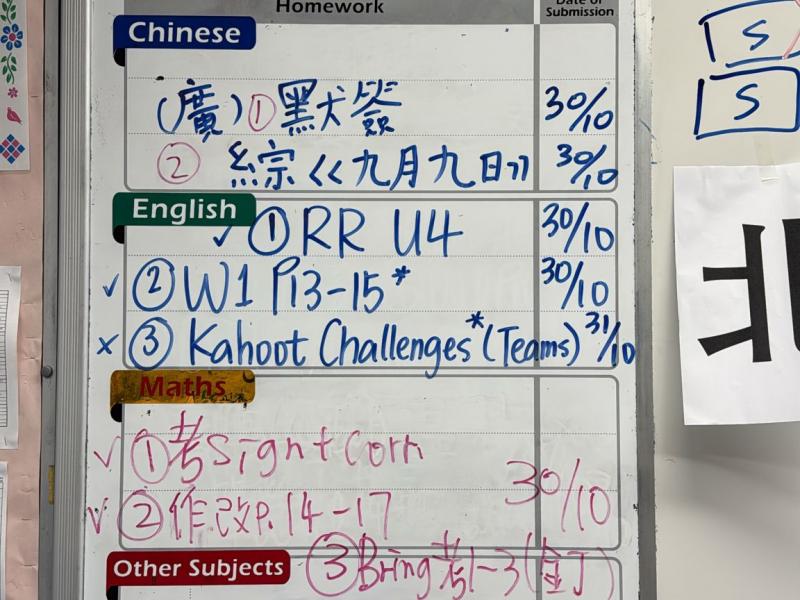 Homework
Date of Submission
Chinese
(廣) ① 默簽 30/10
② 綜《九月九日》 30/10
English
✓ ① RR U4 30/10
✓ ② W1 P13-15* 30/10
x ③ Kahoot Challenges* (Teams) 31/10
Maths
✓ ① 考 Sign + Corr
✓ ② 作改P.14-17 30/10
Other Subjects
③ Bring 考1-3 (釘)
S
S
北